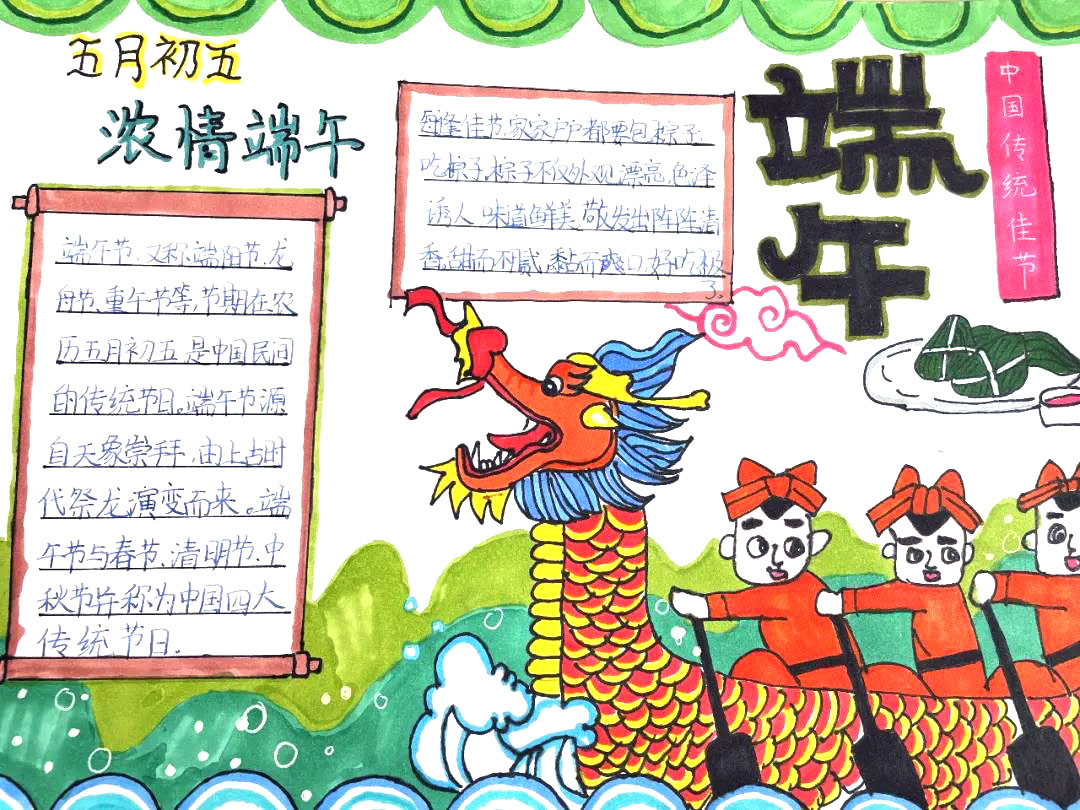 五月初五
浓情端午
端午节，又称端阳节、龙
舟节、重午节等，节期在农
历五月初五，是中国民间
的传统节日。端午节源
自天象崇拜，由上古时
代祭龙演变而来。端
午节与春节、清明节、中
秋节并称为中国四大
传统节日。
每逢佳节，家家户户都要包粽子、
吃粽子，粽子不仅外观漂亮，色泽
诱人，味道鲜美，散发出阵阵清
香，甜而不腻，黏而爽口，好吃极
了。
端
午
中国传统佳节